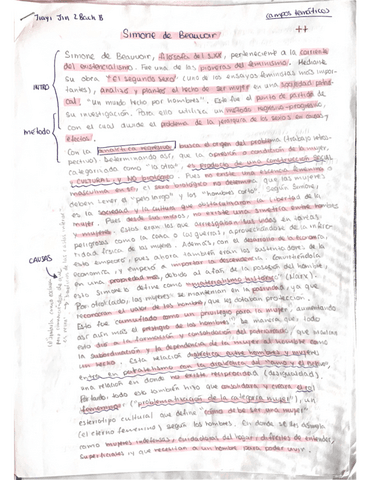 Jiayi Jin 2 Bach B
campos temáticos
++
Simone de Beauvoir
Simone de Beauvoir, filósofa del s.XX, perteneciente a la corriente
del existencialismo. Fue una de las pioneras del feminismo. Mediante
INTRO
su obra "El segundo sexo" (uno de los ensayos feministas más impor-
tantes), analiza y plantea el hecho de ser mujer en una sociedad patriar-
cal: "Un mundo hecho por hombres". Este fue el punto de partida de
su investigación. Para ello utiliza un método regresivo-progresivo,
método
con el cual aborda el problema de la jerarquía de los sexos en causas y
efectos.
Con la busca el origen del problema (trabajo retros-
pectivo). Determinando así, que la opresión o condición de la mujer,
categorizada como "la otra", es producto de una construcción social
y cultural, y no biológico. Pues no existe una esencia femenina o
masculina en sí, el sexo biológico no determina que las mujeres
deben tener el "pelo largo" y los "hombres corto". Según Simone,
es la sociedad y la cultura que la libertad de la
mujer. Pues desde los no existe una simetría entre hombres
y mujeres. Estos eran los que arriesgaban sus vidas en tareas
peligrosas como la caza o las guerras, aprovechándose de la
física de las mujeres. Además, con el desarrollo de la economía,
esto empeoró, pues ahora también eran los sustentadores de la
economía, y empezó a importar la descendencia. Convirtiéndola
CAUSAS
en una propiedad más, debido al afán de la posesión del hombre,
esto Simone lo define como "materialismo histórico" (Marx).
Por otro lado, las mujeres se mantenían en la pasividad, ya que
reconocían el valor de los hombres, que les otorgaban protección.
Esto fue considerado un privilegio para la mujer, aumentando
aún más el privilegio de los hombres, de manera que, todo
esto dio a la formación y consolidación del patriarcado, que
la subordinación y la dependencia de la mujer al hombre como
un hecho. Esta relación dialéctica entre hombres y mujeres,
entra en paralelismo con la dialéctica del "amo y el esclavo",
una relación en donde no existe reciprocidad (desigualdad).
Por tanto, todo esto también hizo que y creara el rol
femenino ("problematización de la categoría mujer"), un
estereotipo cultural que define "cómo debe ser una mujer"
(el eterno femenino) según los hombres. En donde se les
como mujeres indefensas, cuidadoras del hogar, difíciles de entender,
superficiales y que necesitan a un hombre para poder vivir.